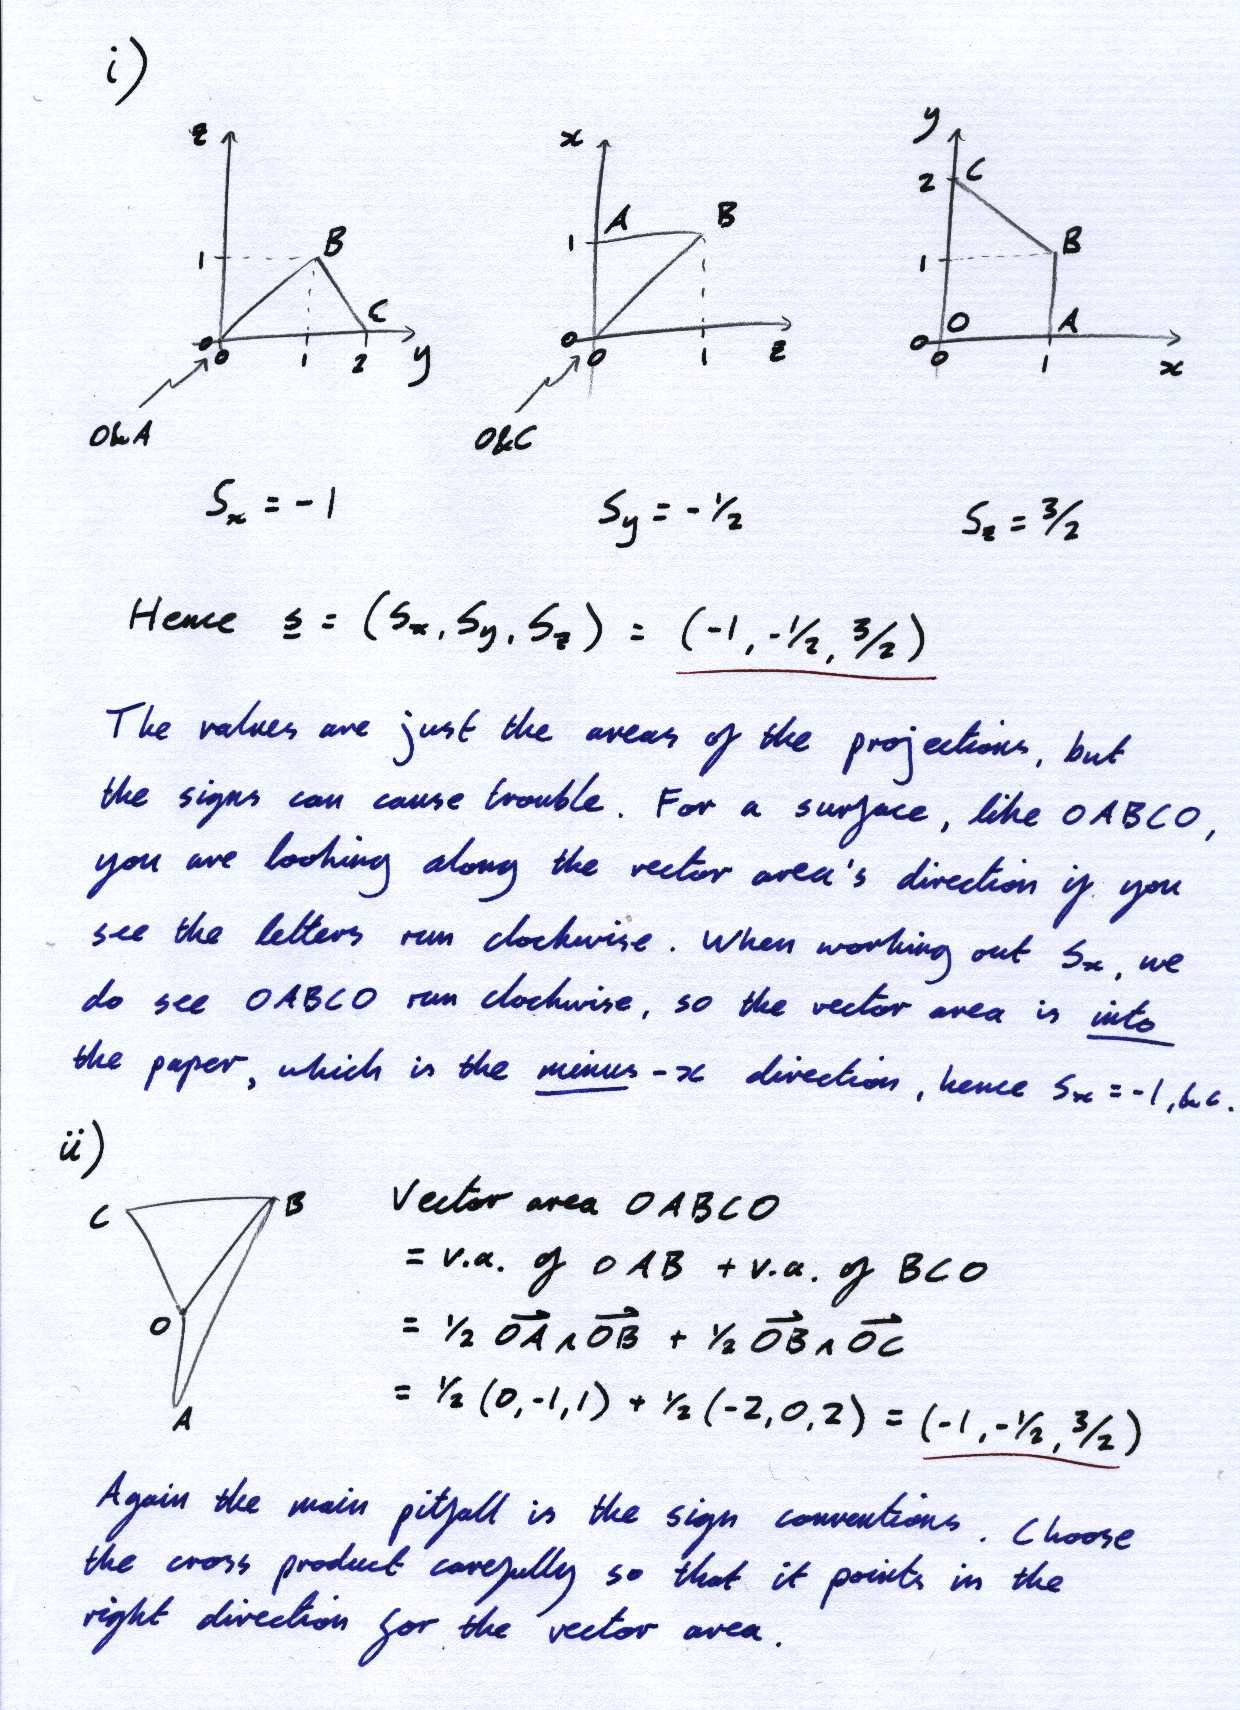 i)
z x y
2 C
1 B 1 A B 1 B
C O A
0 0 1 2 y 0 0 1 z 0 0 1 x
O&A O&C
Sx = -1 Sy = -½ Sz = 3/2
Hence s = (Sx, Sy, Sz) = (-1, -½, 3/2)
The values are just the areas of the projections, but
the signs can cause trouble. For a surface, like OABCO,
you are looking along the vector area's direction if you
see the letters run clockwise. When working out Sx, we
do see OABCO run clockwise, so the vector area is into
the paper, which is the minus-x direction, hence Sx = -1, &c.
ii)
C B O A
Vector area OABCO
= v.a. of OAB + v.a. of BCO
= ½ OA ∧ OB + ½ OB ∧ OC
= ½ (0, -1, 1) + ½ (-2, 0, 2) = (-1, -½, 3/2)
Again the main pitfall is the sign conventions. Choose
the cross product carefully so that it points in the
right direction for the vector area.